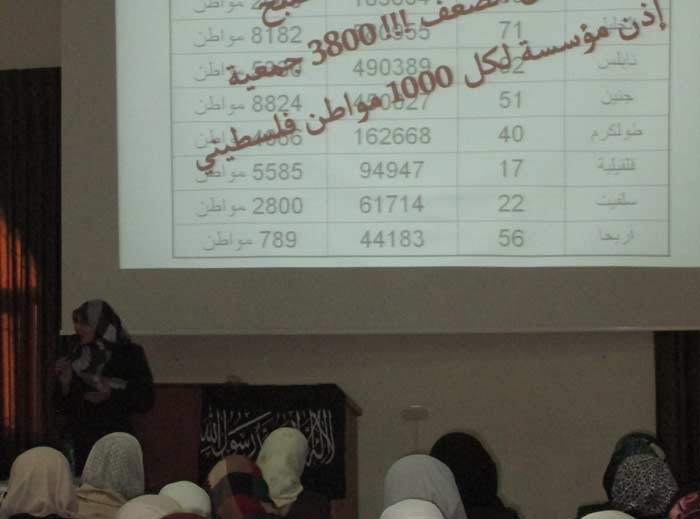 الضعف !!! 3800 جمعية
إذن مؤسسة لكل 1000 مواطن فلسطيني
71 8182 مواطن
نابلس 490389 مواطن
جنين 51 8824 مواطن
طولكرم 40 162668 مواطن
قلقيلية 17 94947 5585 مواطن
سلفيت 22 61714 2800 مواطن
اريحا 56 44183 789 مواطن
لا إله إلا الله محمد رسول الله